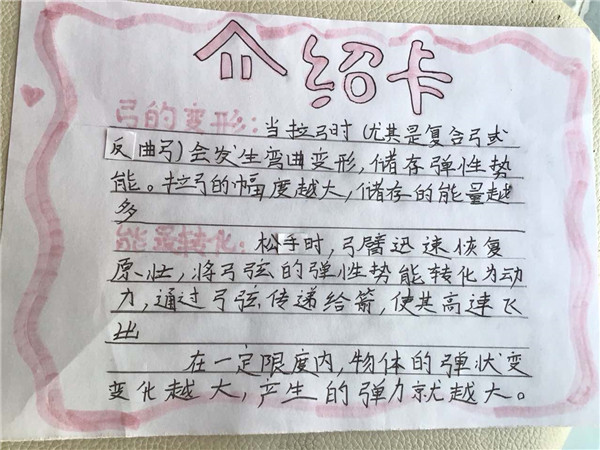 介绍卡
弓的变形：当拉弓时（尤其是复合弓或
反曲弓）会发生弯曲变形，储存弹性势
能。拉弓的幅度越大，储存的能量越
多
能量转化：松手时，弓臂迅速恢复
原状，将弓弦的弹性势能转化为动
力，通过弓弦传递给箭，使其高速飞
出
在一定限度内，物体的弹状变
变化越大，产生的弹力就越大。